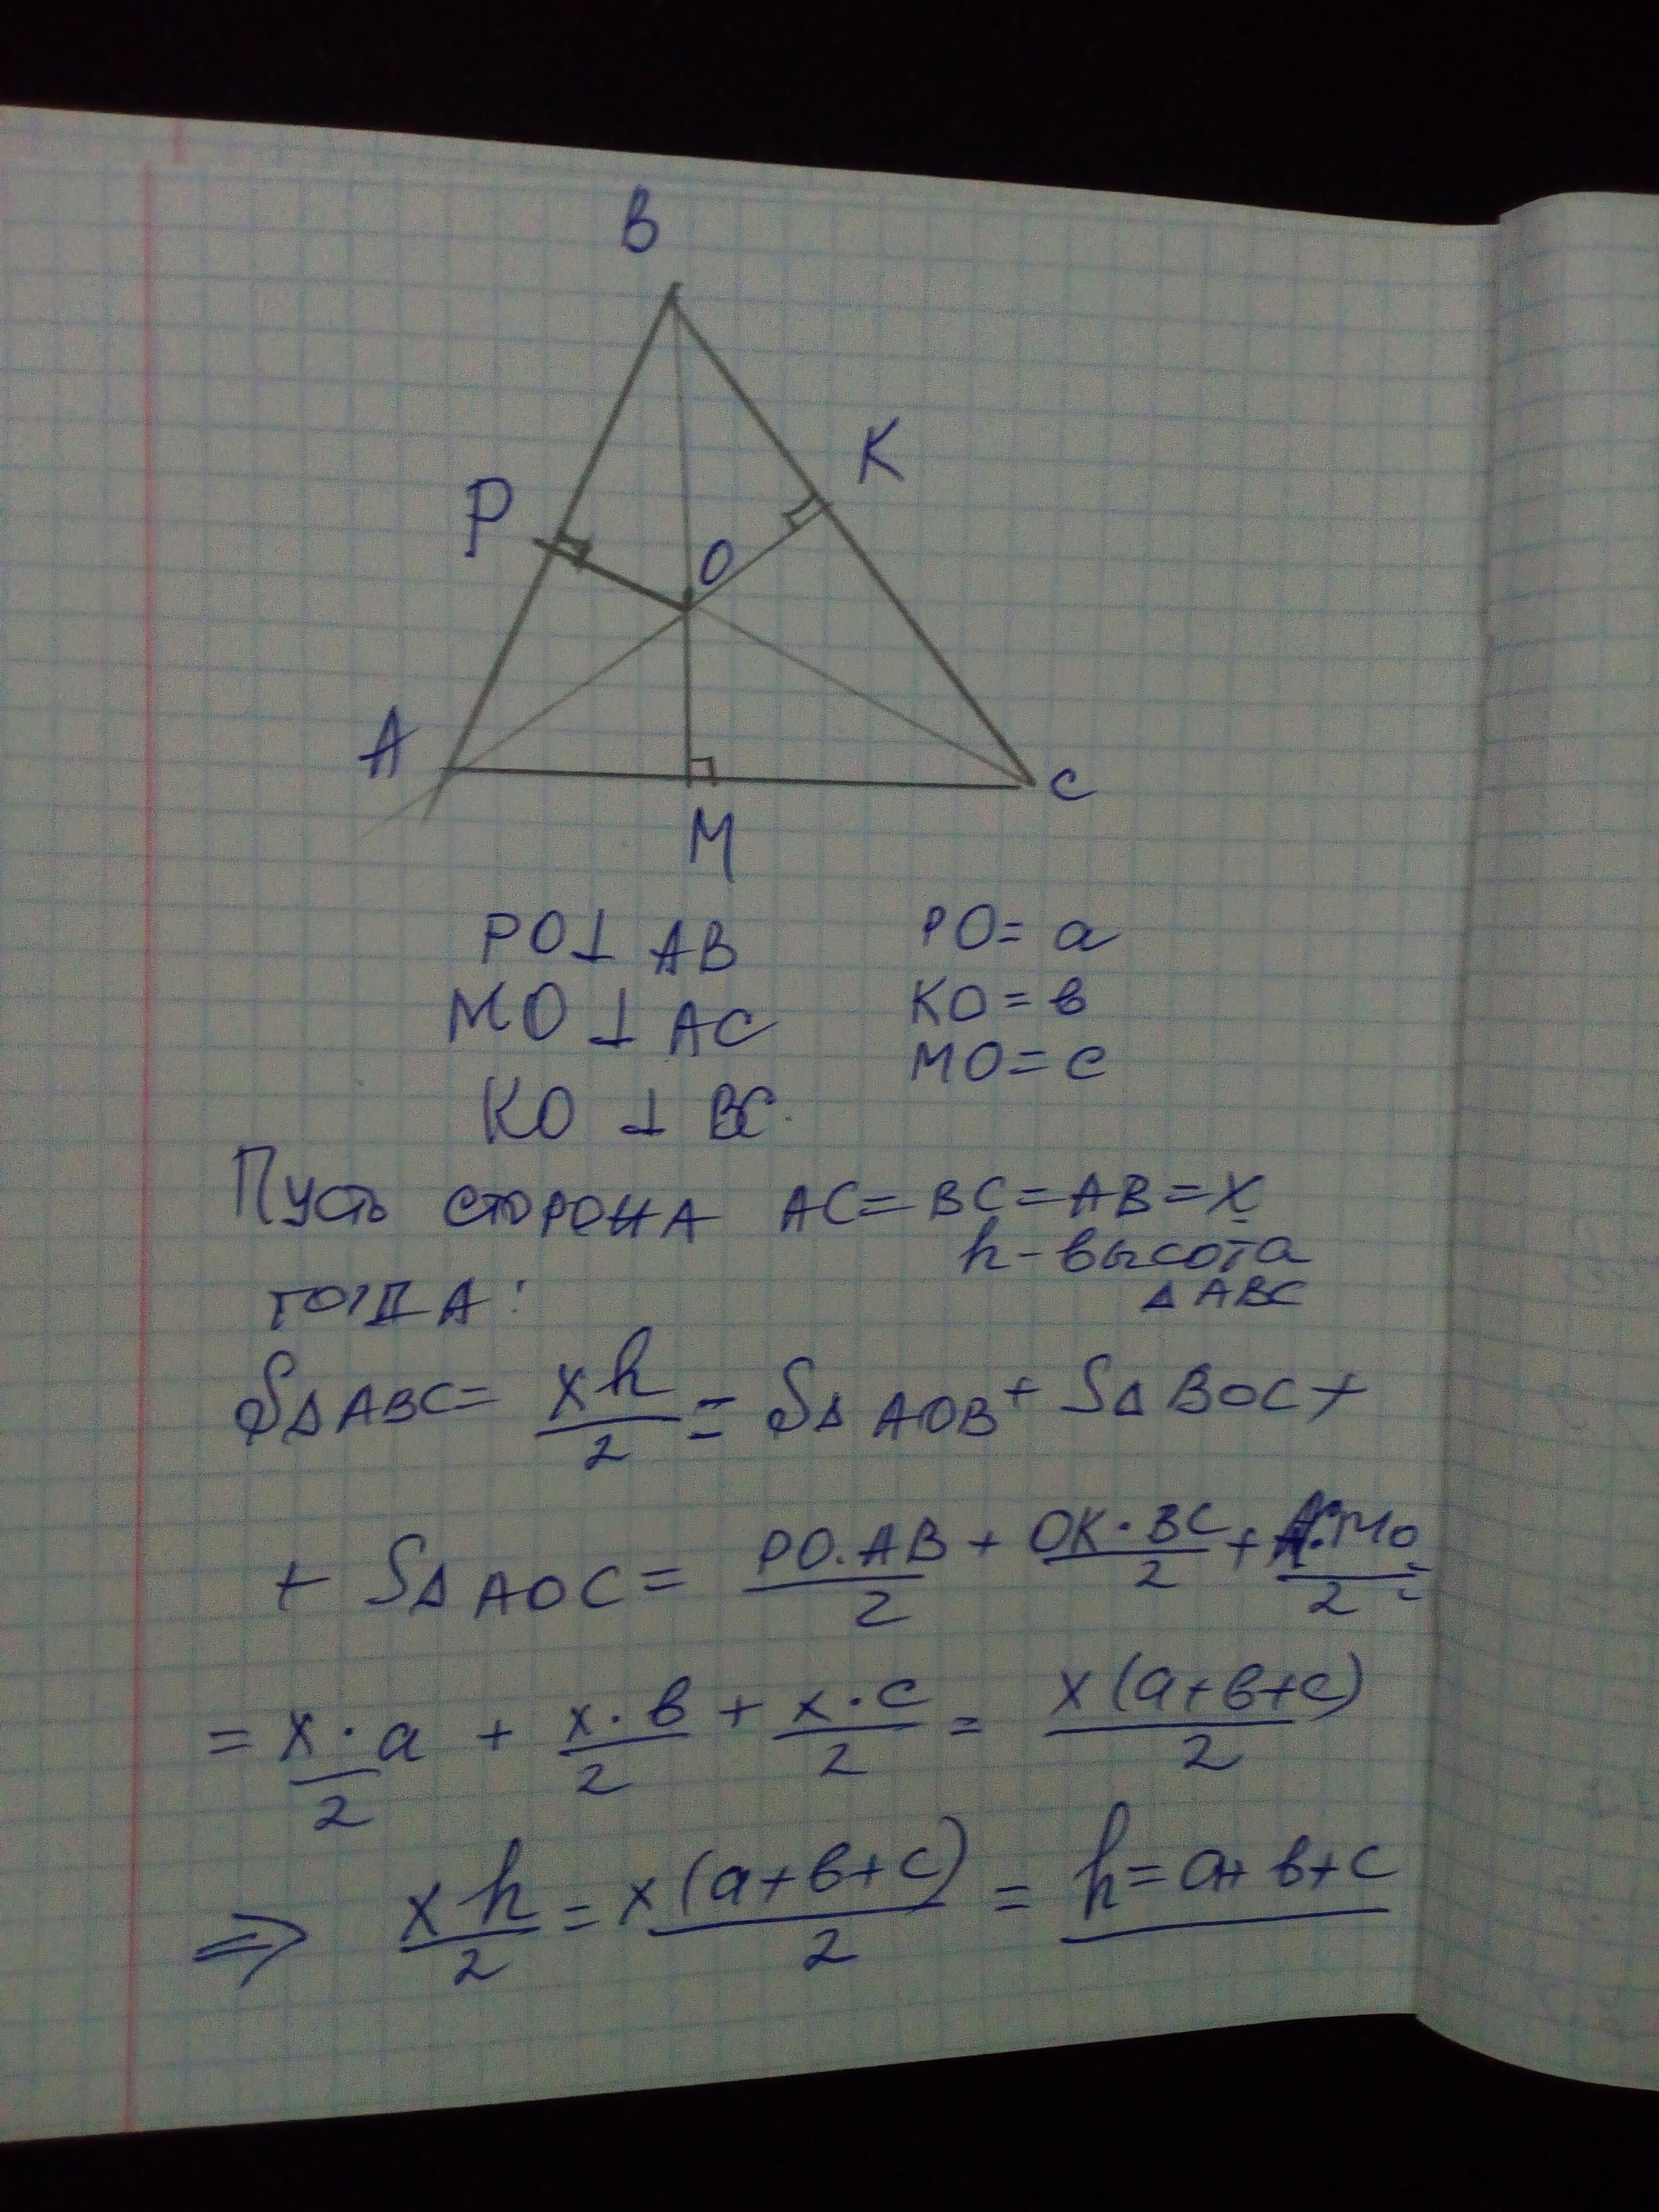 B
K
P
O
A
C
M
PO⊥ AB PO= a
MO ⊥ AC KO = в
KO ⊥ BC. MO = c
Пусть сторона AC=BC=AB=x
h - высота
тогда: Δ ABC
SΔABC= xh/2 = SΔ AOB + SΔ BOC +
+ SΔ AOC = PO·AB/2 + OK·BC/2 + ·MO/2 =
= x·a/2 + x·в/2 + x·c/2 = x(a+в+c)/2
⇒ xh/2 = x(a+в+c)/2 = h=a+в+c